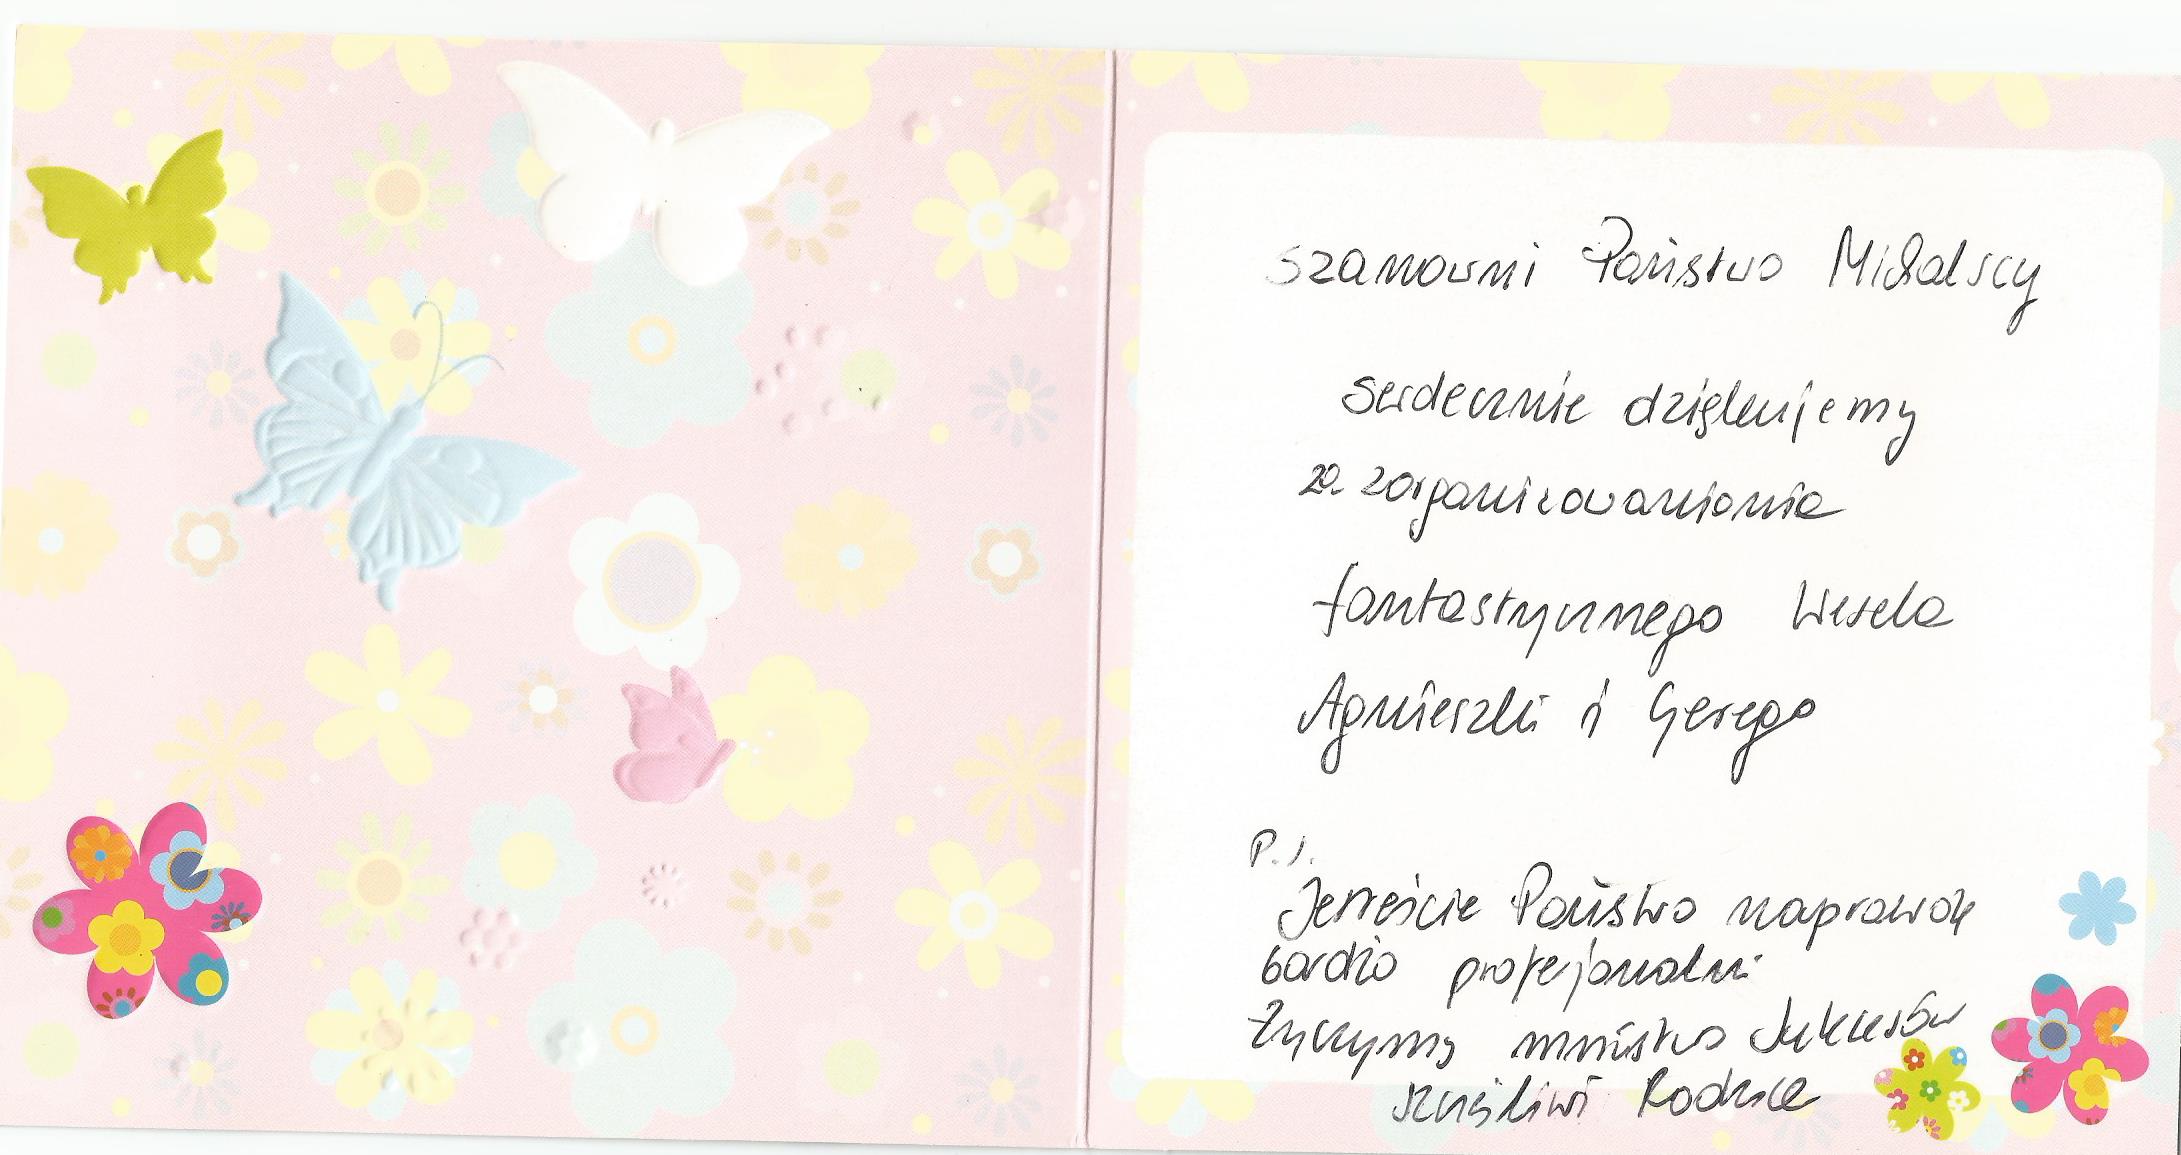 Szanowni Państwo Michalscy
serdecznie dziękujemy
za zorganizowanie
fantastycznego Wesela
Agnieszki i Gerego
P.S.
Jesteście Państwo naprawdę
bardzo profesjonalni
Życzymy mnóstwo sukcesów
szczęśliwi Rodzice